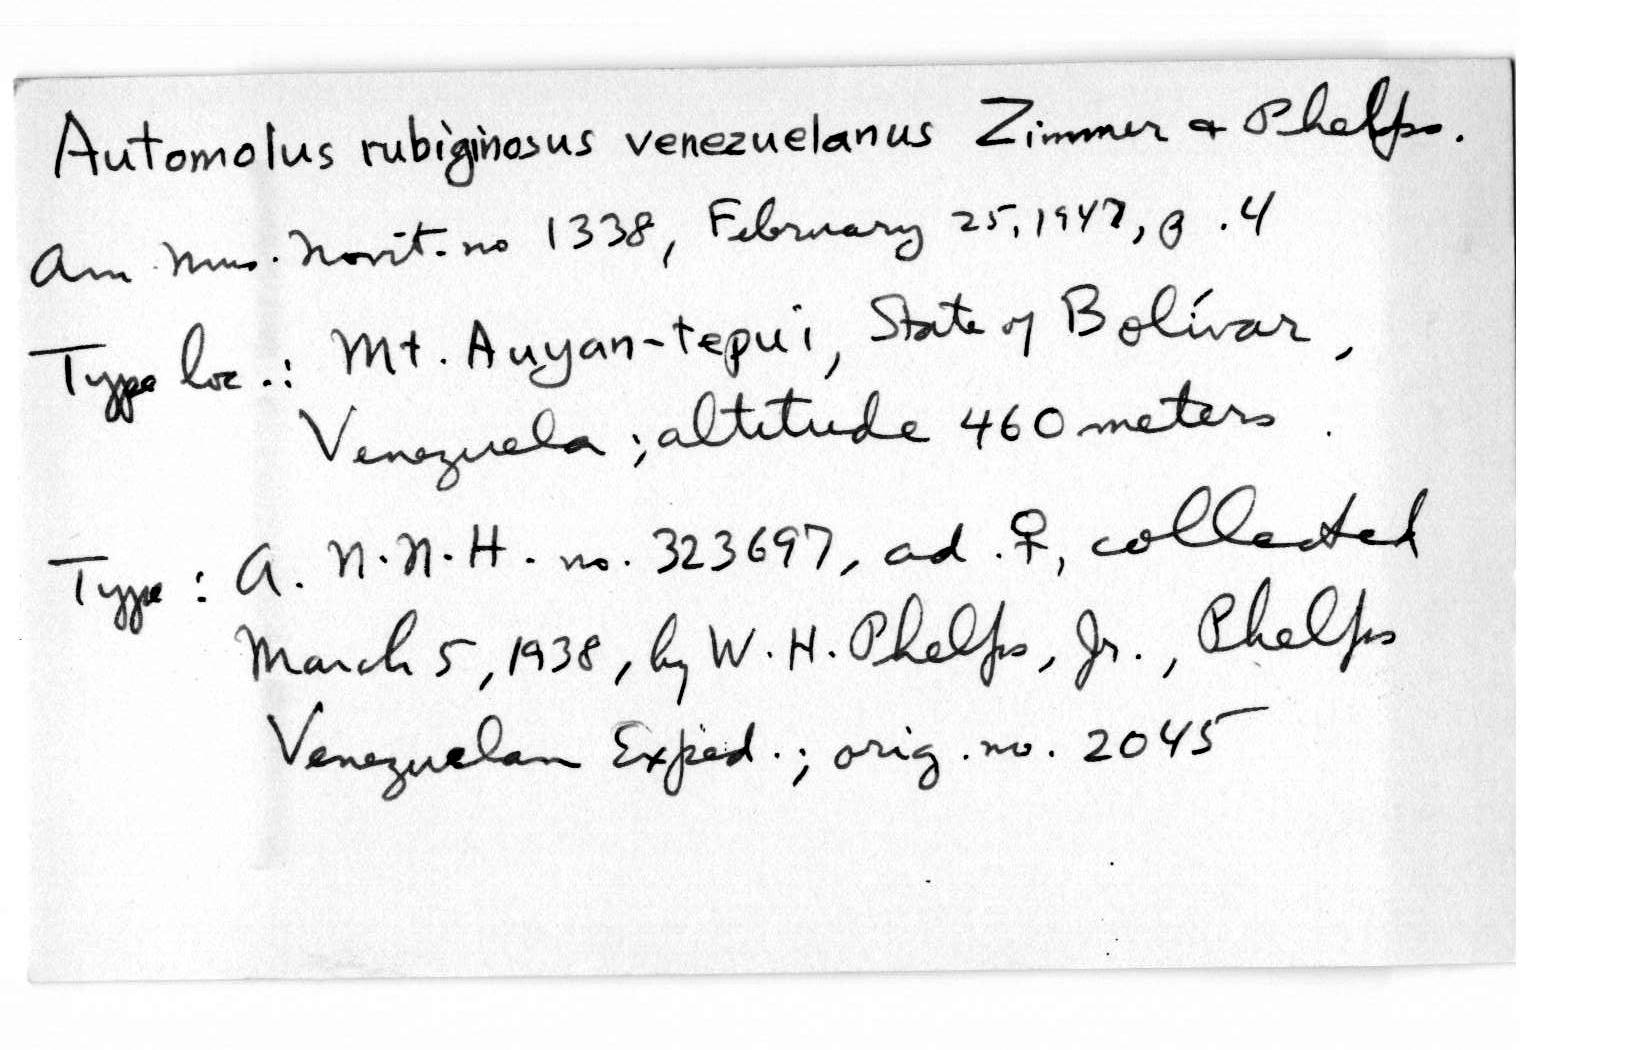 Automolus rubiginosus venezuelanus Zimmer & Phelps.
Am. Mus. Novit. no 1338, February 25, 1947, p. 4
Type loc.: Mt. Auyan-tepui, State of Bolívar,
Venezuela; altitude 460 meters.
Type: A. N. N. H. no. 323697, ad. ♀, collected
March 5, 1938, by W. H. Phelps, Jr., Phelps
Venezuelan Exped.; orig. no. 2045